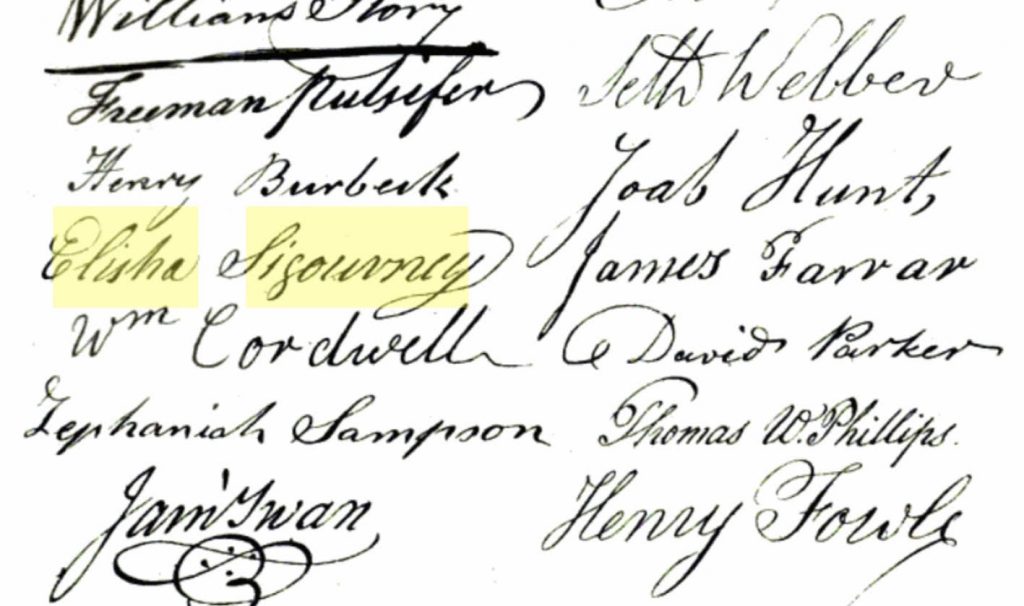 William Story
Freeman Pulsifer
Henry Burbeck
Elisha Sigourney
Wm Cordwell
Zephaniah Sampson
Jam' Swan
Seth Webber
Joab Hunt,
James Farrar
David Parker
Thomas W. Phillips.
Henry Fowle